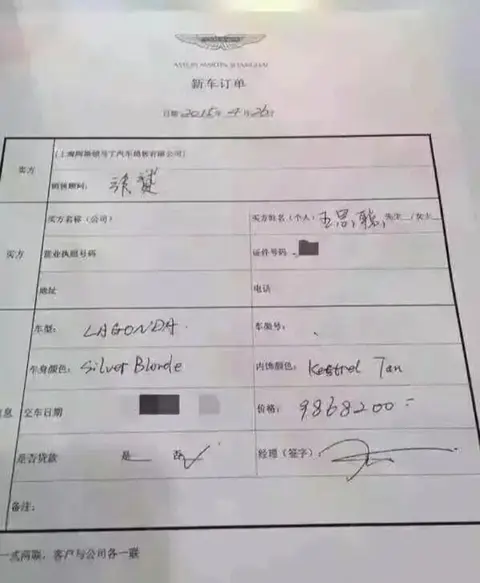 ASTON MARTIN SHANGHAI
新车订单
日期 2015年 4月26日
卖方
[上海阿斯顿马丁汽车销售有限公司]
销售顾问:
买方
买方名称(公司)
买方姓名(个人)王思聪 先生__/女士__
营业执照号码
证件号码
地址
电话
车型: LAGONDA
车架号:
车身颜色: Silver Blonde
内饰颜色: Kestrel Tan
信息
交车日期
价格: 9868200
是否贷款
是
否 √
经理(签字):
备注:
一式两联,客户与公司各一联